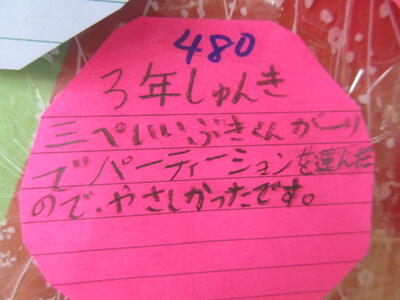 480
3年しゅんき
三ぺいいぶきくんが一り
でパーティーションを運んだ
ので、やさしかったです。